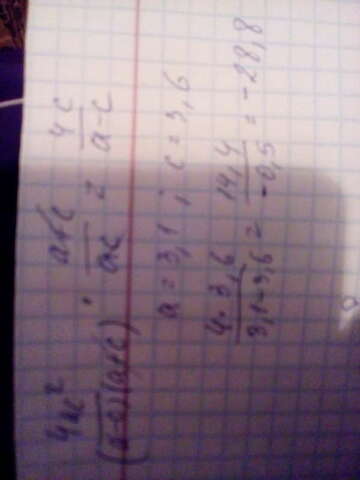 4ac² / (a-c)(a+c) · a+c / ac = 4c / a-c
a = 3,1 ; c = 3,6
4·3,6 / 3,1-3,6 = 14,4 / -0,5 = -28,8